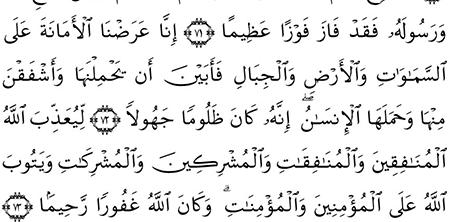 وَرَسُولَهُۥ فَقَدْ فَازَ فَوْزًا عَظِيمًا ﴿٧١﴾ إِنَّا عَرَضْنَا ٱلْأَمَانَةَ عَلَى
ٱلسَّمَـٰوَٰتِ وَٱلْأَرْضِ وَٱلْجِبَالِ فَأَبَيْنَ أَن يَحْمِلْنَهَا وَأَشْفَقْنَ
مِنْهَا وَحَمَلَهَا ٱلْإِنسَـٰنُ ۖ إِنَّهُۥ كَانَ ظَلُومًا جَهُولًا ﴿٧٢﴾ لِّيُعَذِّبَ ٱللَّهُ
ٱلْمُنَـٰفِقِينَ وَٱلْمُنَـٰفِقَـٰتِ وَٱلْمُشْرِكِينَ وَٱلْمُشْرِكَـٰتِ وَيَتُوبَ
ٱللَّهُ عَلَى ٱلْمُؤْمِنِينَ وَٱلْمُؤْمِنَـٰتِ ۗ وَكَانَ ٱللَّهُ غَفُورًا رَّحِيمًۢا ﴿٧٣﴾